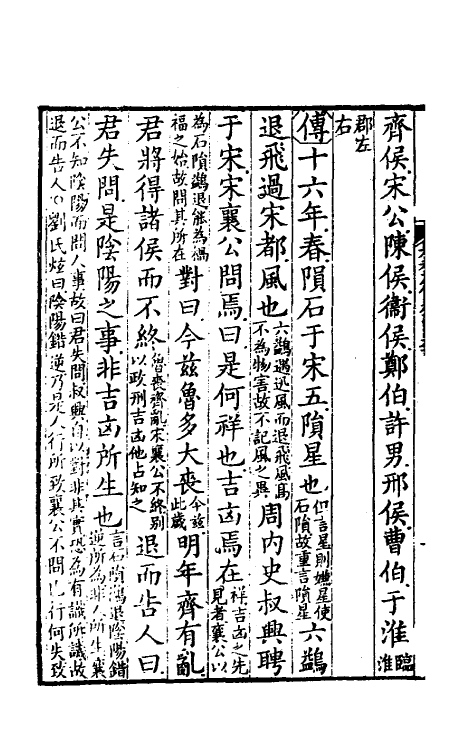 齊侯宋公陳侯衞侯鄭伯許男邢侯曹伯于淮臨淮
郡左
右
傳十六年春隕石于宋五隕星也但言星則嫌星使石隕故重言隕星六鷁
退飛過宋都風也六鷁遇迅風而退飛風高不為物害故不記風之異周內史叔興聘
于宋宋襄公問焉曰是何祥也吉凶焉在祥吉凶之先見者襄公以
為石隕鷁退能為禍福之始故問其所在對曰今茲魯多大喪今茲此歲明年齊有亂
君將得諸侯而不終魯喪齊亂宋襄公不終別以政刑吉凶他占知之退而告人曰
君失問是陰陽之事非吉凶所生也言石隕鷁退陰陽錯逆所為非人所生襄
公不知陰陽而問人事故曰君失問叔興自以對非其實恐為有識所譏故
退而告人 劉氏炫曰陰陽錯逆乃是人行所致襄公不問己行何失致